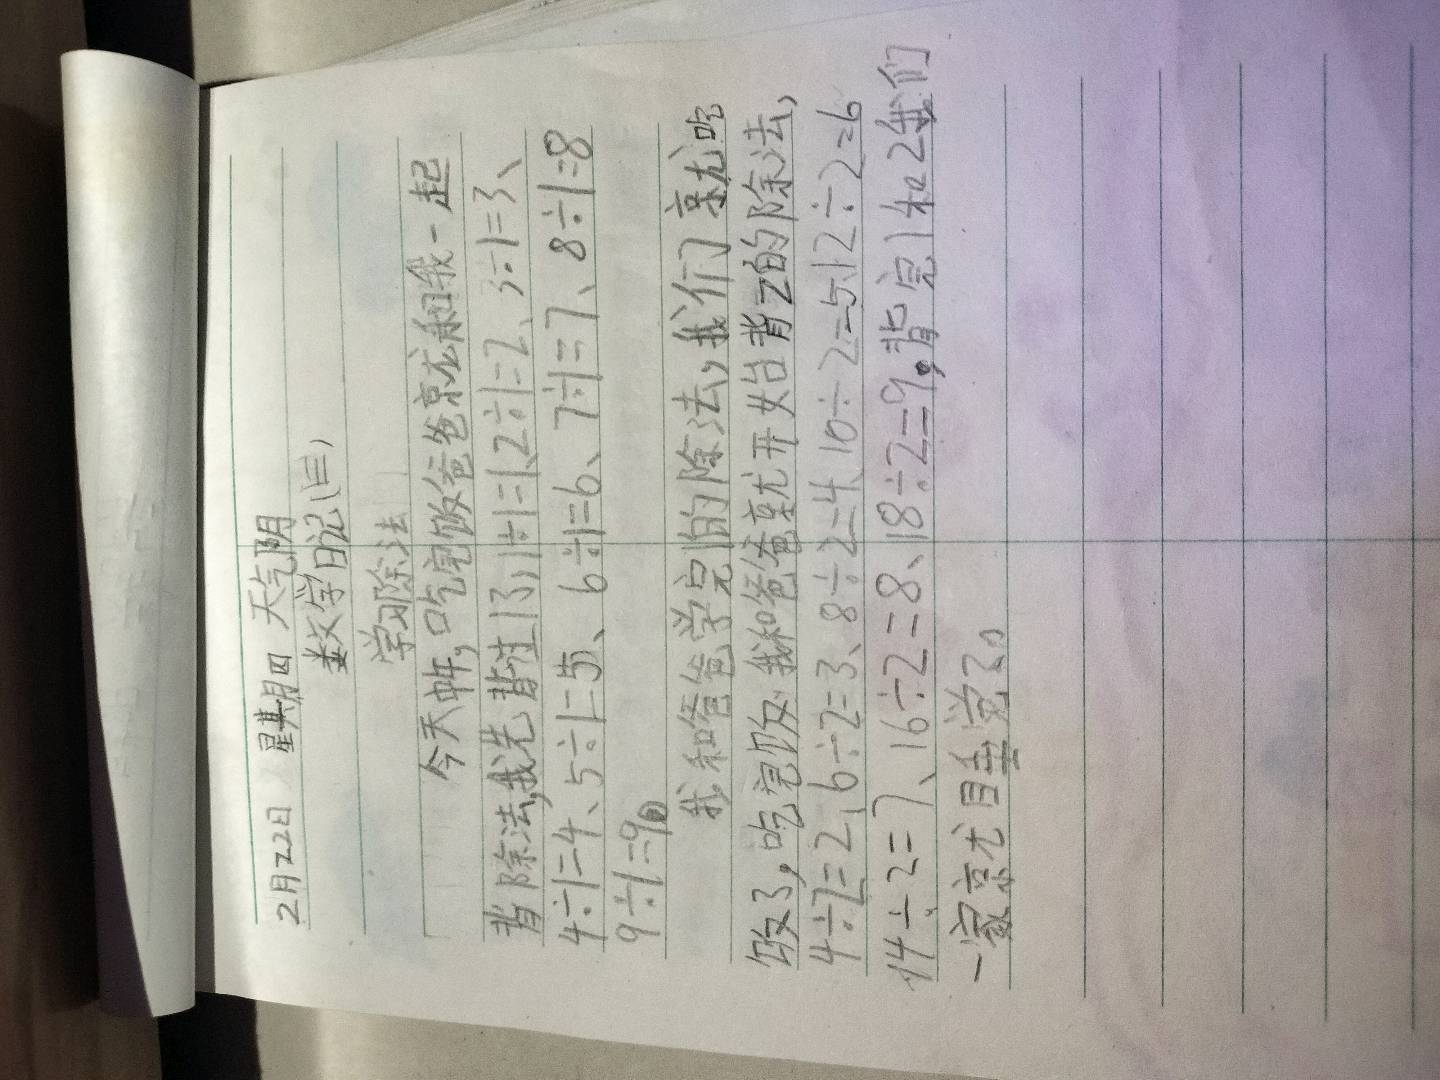 2月22日 星期四 天气阴
数学日记(三)
学习除法
今天中午,吃完饭爸爸就和我一起
背除法,我先背过1了,1÷1=1、2÷1=2、3÷1=3、
4÷1=4、5÷1=5、6÷1=6、7÷1=7、8÷1=8
9÷1=9。
我和爸爸学完1的除法,我们就吃
饭了,吃完饭,我和爸爸就开始背2的除法,
4÷2=2、6÷2=3、8÷2=4、10÷2=5、12÷2=6
14÷2=7、16÷2=8、18÷2=9。背完1和2我们
一家就目垂觉了。